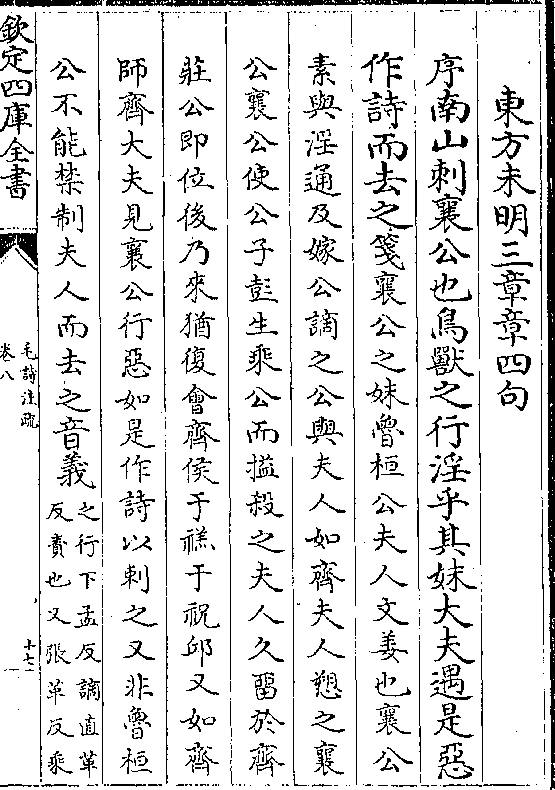 東方未明三章章四句
序南山刺襄公也鳥獸之行淫乎其妹大夫遇是惡
作詩而去之箋襄公之妹魯桓公夫人文姜也襄公
素與淫通及嫁公謫之公與夫人如齊夫人愬之襄
公襄公使公子彭生乘公而搤殺之夫人久留於齊
莊公即位後乃來猶復會齊侯于禚于祝邱又如齊
師齊大夫見襄公行惡如是作詩以刺之又非魯桓
公不能禁制夫人而去之音義
之行下孟反謫直革
反責也又張革反乘
欽定四庫全書
毛詩注疏
卷八
十七